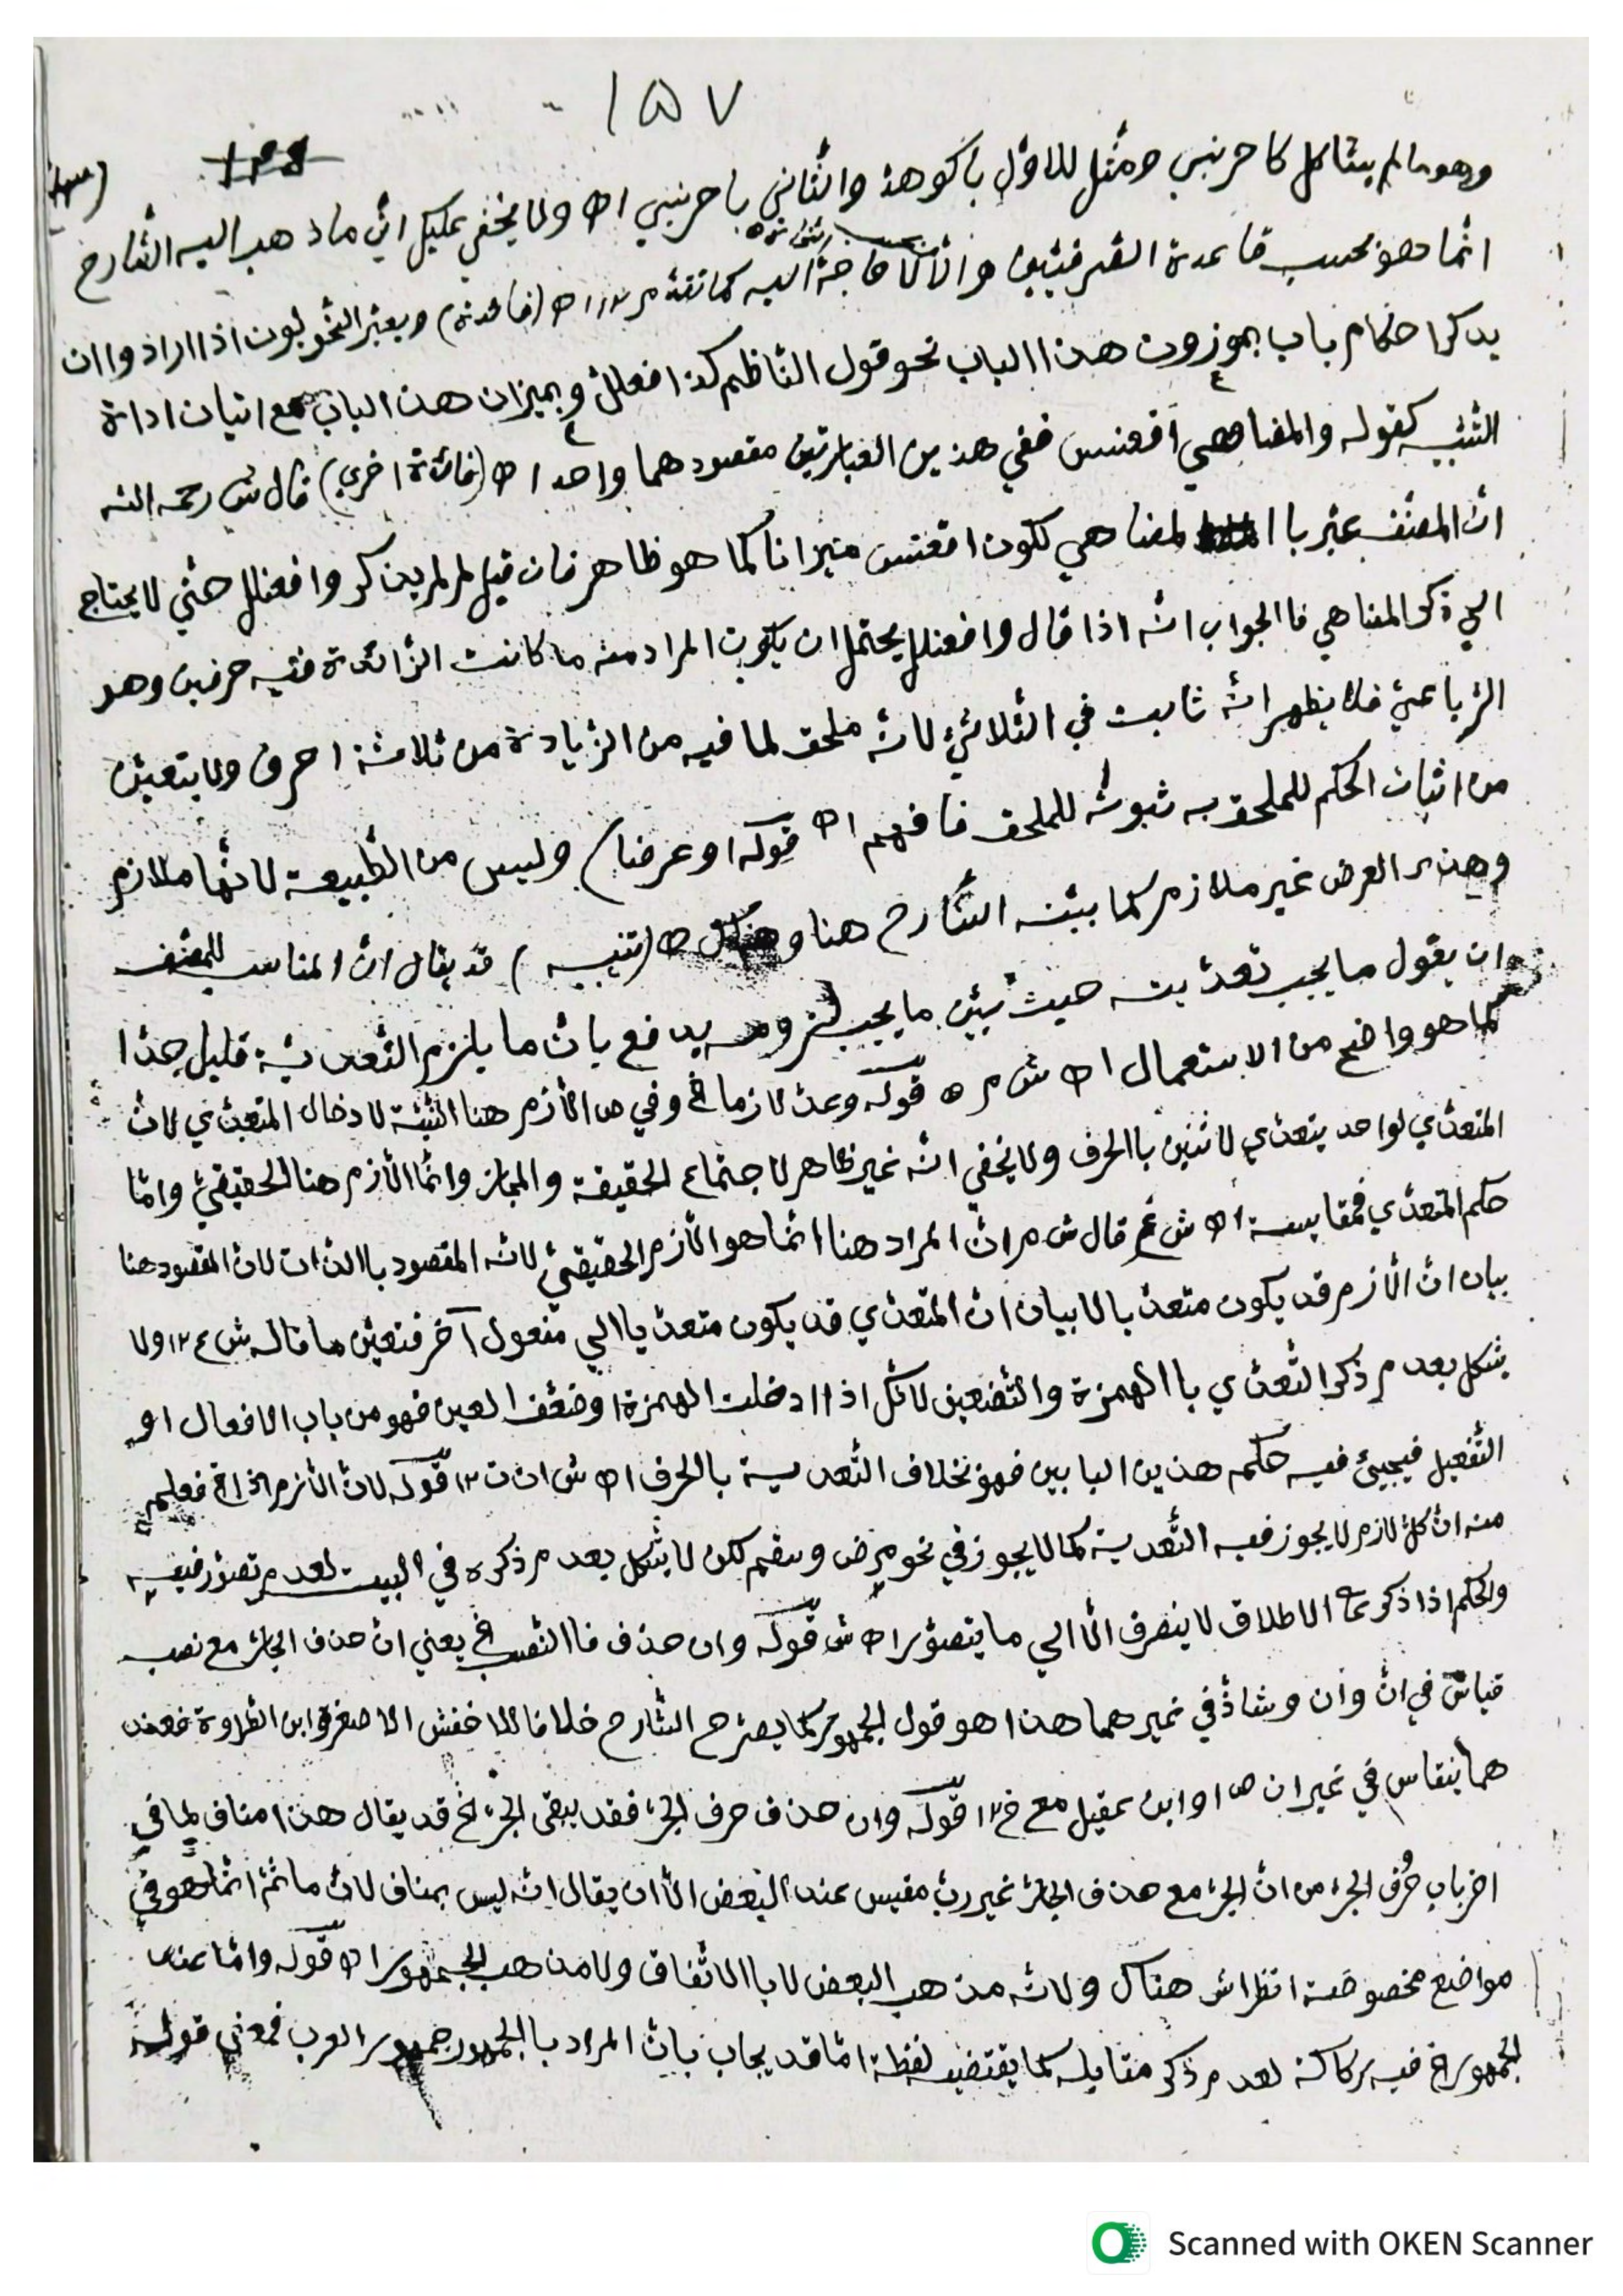 ١٥٧
وهو ما لم يشاكل كاحرنبى ومثل للاول باكوهذ والثاني باحرنبي اه ولا يخفي عليك ان ما ذهب اليه الشارح
انما هو بحسب قاعدة الصرفيين والا لا حاجة اليه كما تقدم اه (فائدة) ويعبر النحويون اذا ارادوا ان
يذكر احكام باب بموزون هذا الباب نحو قول الناظم كذا افعلل وبميزان هذ الباب مع اتيان اداة
التشبيه كقوله والمضاهي اقعنسس ففي هذين العبارتين مقصودهما واحد اه (فائدة اخري) قال ش رحمه الله
ان المصنف عبر با المضاهي لكون اقعنسس ميزانا كما هو ظاهر فان قيل لم لم يذكر وافعنلل حتي لا يحتاج
الي ذكر المضاهي فا الجواب انه اذا قال وافعنلل يحتمل ان يكون المراد منه ما كانت الزائدة فيه حرفين وهو
الرباعي فلا يظهر انه ثابت في الثلاثي لانه ملحق لما فيه من الزيادة من ثلاثة احرف ولا يتعين
من اثبات الحكم للملحق به ثبوته للملحق فافهم اه قوله او عرضا) وليس من الطبيعة لانها ملازم
وهذا العرض غير ملازم كما بينه الشارح هنا و اه (تنبيه) قد يقال ان المناسب للمصنف
ان يقول ما يجب تعديته حيث بين ما يجب لزومه يدفع بان ما يلزم التعدية قليل جدا
كما هو واضح من الاستعمال اه ش م ه قوله وعد لازما الخ وفي ص اللازم هنا النية لادخال المتعدي لان
المتعدي لواحد يتعدي لاثنين باالحرف ولا يخفي انه غير ظاهر لاجتماع الحقيقة والمجاز وانما اللازم هنا الحقيقي واما
حكم المتعدي فمقايسة اه ش غ قال ش م ان المراد هنا انما هو اللازم الحقيقي لانه المقصود باالذات لان المقصود هنا
بيان ان اللازم قد يكون متعد يا لا بيان ان المتعدي قد يكون متعد يا الي مفعول آخر فتعين ما قاله ش ع ١٢ ولا
يشكل بعدم ذكر التعدي با الهمزة والتضعيف لانك اذا ادخلت الهمزة او ضعف العين فهو من باب الافعال او
التفعيل فيجيئ فيه حكم هذين البابين فهو بخلاف التعدية بالحرف اه ش ان ت ١٢ قوله لان اللازم اذا الخ فعلم
منه ان كل لازم لا يجوز فيه التعدية كما لا يجوز في نحو مرض وسقم لكن لا يشكل بعدم ذكره في البيت لعدم تصور فيه
والحكم اذا ذكر على الاطلاق لا ينصرف الا الي ما يتصور اه ش قوله وان حذف فا النصب الخ يعني ان حذف الجار مع نصب
قياس في ان وان وشاذ في غيرهما هذا هو قول الجمهور كما يصرح الشارح خلافا للاخفش الاصغر وابن الطراوة فعند
هما ينقاس في غير ان ص او ابن عقيل مع خ ١٢ قوله وان حذف حرف الجر فقد يبقى الجر الخ قد يقال هذا مناف لما في
اخر باب حرف الجر من ان الجر مع حذف الجار غير رب مقيس عند البعض الا ان يقال انه ليس بمناف لان ما ثم انما هو في
مواضع مخصوصة انظر اش هناك ولانه مذهب البعض لا با الاتفاق ولا مذهب الجمهور اه قوله واما عند
الجمهور الخ فيه ركاكة لعدم ذكر مقابله كما يقتضيه لفظة اما قد يجاب بان المراد با الجمهور جمهور العرب فمعني قوله
Scanned with OKEN Scanner